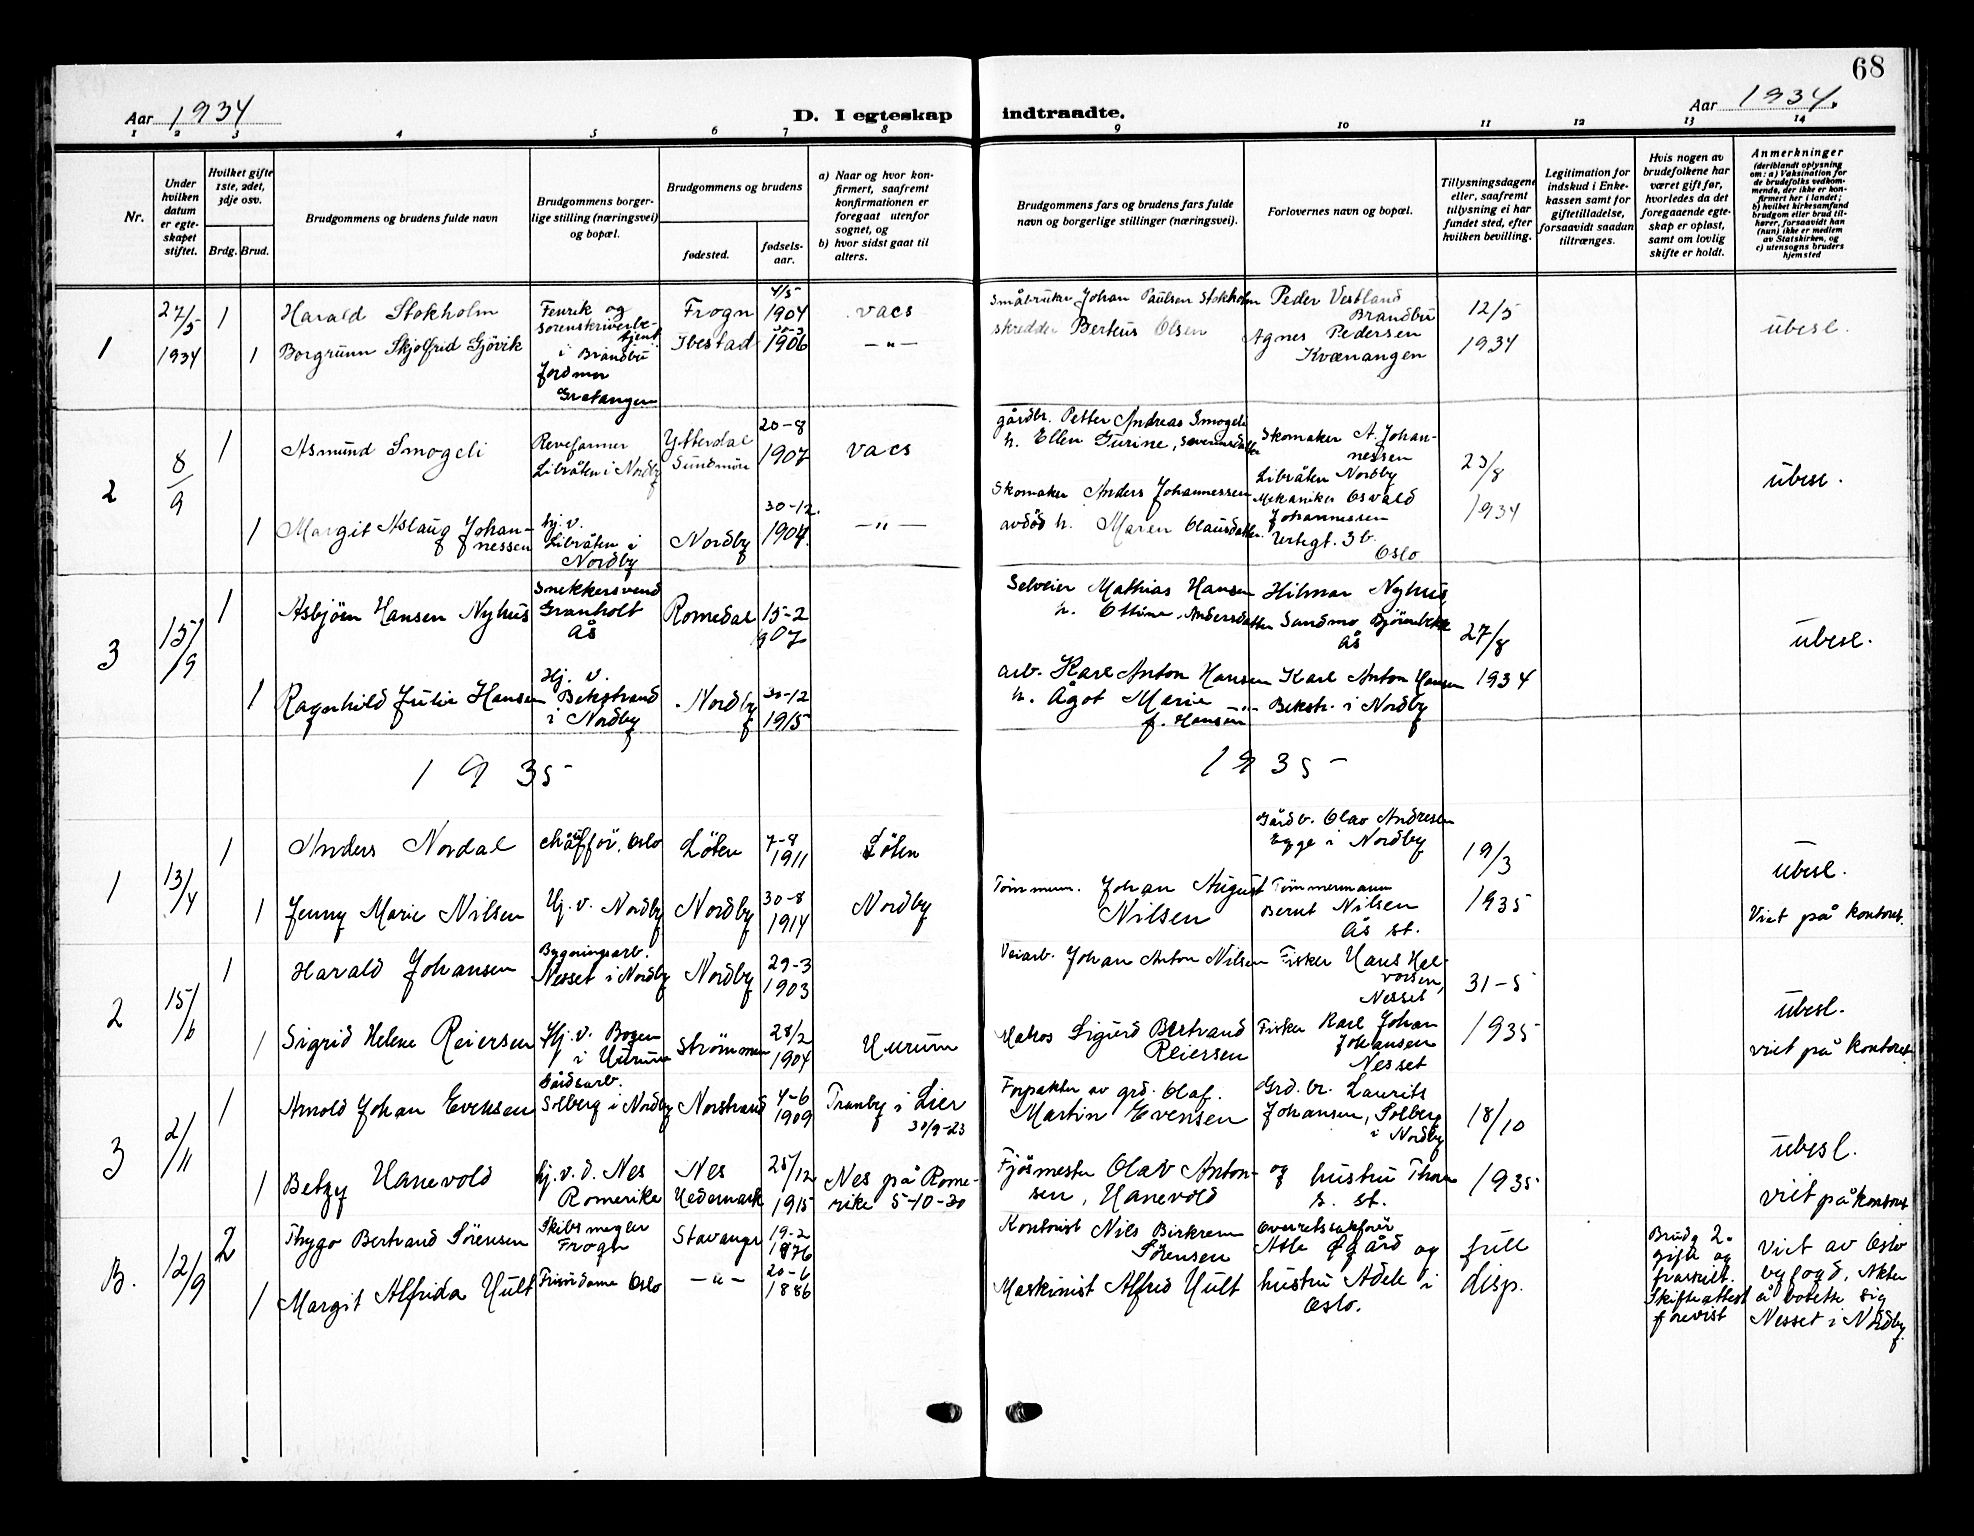 68
Aar 1934
D. I egteskap indtraadte.
Aar 1934.
1 2 3 4 5 6 7 8 9 10 11 12 13 14
Nr.
Under hvilken datum er egteskapet stiftet.
Hvilket gifte 1ste, 2det, 3dje osv.
Brdg. Brud.
Brudgommens og brudens fulde navn
Brudgommens borgerlige stilling (næringsvei) og bopæl.
Brudgommens og brudens
fødested.
fødselsaar.
a) Naar og hvor konfirmert, saafremt konfirmationen er foregaat utenfor sognet, og
b) hvor sidst gaat til alters.
Brudgommens fars og brudens fars fulde navn og borgerlige stillinger (næringsvei).
Forlovernes navn og bopæl.
Tillysningsdagene eller, saafremt tillysning ei har fundet sted, efter hvilken bevilling.
Legitimation for indskud i Enkekassen samt for giftetilladelse, forsaavidt saadan tiltrænges.
Hvis nogen av brudefolkene har været gift før, hvorledes da det foregaaende egteskap er opløst, samt om lovlig skifte er holdt.
Anmerkninger
(deriblandt oplysning om: a) Vaksination for de brudefolks vedkommende, der ikke er konfirmert her i landet;
b) hvilket kirkesamfund brudgom eller brud tilhører, forsaavidt han (hun) ikke er medlem av Statskirken, og
c) utensogns bruders hjemsted
1
27/5 1934
1
Harald Stokholm
Fenrik og sorenskriverbetjent i Brandbu
Frogn
4/5 1904
vacs
Småbruker Johan Paulsen Stokholm
Peder Vestland Brandbu
12/5 1934
ubesl.
1
Borgrunn Skjolfrid Gjövik
Jordmor Gratangen
Ibestad
30-3 1906
—"—
skredder Berteus Olsen
Agnes Pedersen Kvænangen
2
8/9
1
Asmund Smogeli
Revefarmer Libråten i Nordby
Ytterdal Sundmör
20-8 1907
vacs
gårdbr. Petter Andreas Smogeli
h. Ellen Gurine, Severinsdatter
Skomaker A. Johannessen Libråten Nordby
23/8 1934
ubesl.
1
Margit Aslaug Johannessen
hj. v. Libråten i Nordby
Nordby
30-12. 1904.
—"—
Skomaker Anders Johannessen
avdöd h. Maren Olausdatter.
Mekaniker Osvald Johannessen
Vertegt. 3 b. Oslo
3
15/9
1
Asbjörn Hansen Nyhus
Snekkersvend Granholt Ås
Romedal
15-2 907
Selveier Mathias Hansen
h. Ottine, Andersdatter
Hilmar Nyhus, Sandmo Björnebekk Ås
27/8 1934
ubesl.
1
Ragnhild Julie Hansen
Hj. v. Bekstrand i Nordby
Nordby
30-12 1915
arb. Karl Anton Hansen
h. Ågot Marie —"— f. Hansen
Karl Anton Hansen
Bekstr. i Nordby
1935
1935
1
13/4
1
Anders Nordal
chåufför, Oslo
Löten
7-8 1911
Löten
Gårdb. Olav Andresen Bygge i Nordby
19/3 1935
ubesl.
1
Jenny Marie Nilsen
Hj. v. Nordby
Nordby
30-8 1914
Nordby
Tömmerm. Johan August Nilsen
Tömmermann Bernt Nilsen Ås st.
Viet på kontoret.
2
15/6
1
Harald Johansen
Bygningsarb. Nesset i Nordby
Nordby
29-3 1903
Veiarb. Johan Anton Nilsen
Fisker Hans Halvorsen, Nesset
31-5 1935
ubesl.
1
Sigrid Helene Reiersen
Hj. v. Bogen i Hurum
Strömmen
28/2 1904
Hurum
Matros Sigurd Bertrand Reiersen
Fisker Karl Johan Johansen Nesset
viet på kontoret.
3
2/11
1
Arnold Johan Evensen
Gårdsarb. Solberg i Nordby
Norstrand
4-6 1909
Tranby i Lier 30/9-23
Forpakter av grd. Olaf. Martin Evensen
Grd. br. Laurits Johansen, Solberg i Nordby
18/10 1935
ubesl.
1
Betzy Hanevold
hj. v. d. Nes Romerike
Nes Hedemark
25/12 1915
Nes på Romerike 5-10-30
Fjösmester Olav Antonsen, Hanevold
og hustru Thora s. st.
viet på kontoret
B.
12/9
2
Thygo Bertrand Sörensen
Skibsmegler Frogn
Stavanger
19-2 1876
Kontorist Nils Birkrem Sörensen
Overretssakförer Atle Øgård og hustru Adele i Oslo.
full disp.
Brudg 2. gifte og fraskilt. Skifteattest forevist
Viet av Oslo byfogd. Akter å bosette sig Nesset i Nordby.
1
Margit Alfrida Hult
Frisördame Oslo
—"—
20-6 1886
Maskinist Alfred Hult